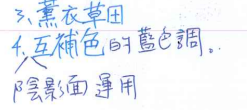 3、薰衣草田
4、互補色的藍色調。
陰影面運用